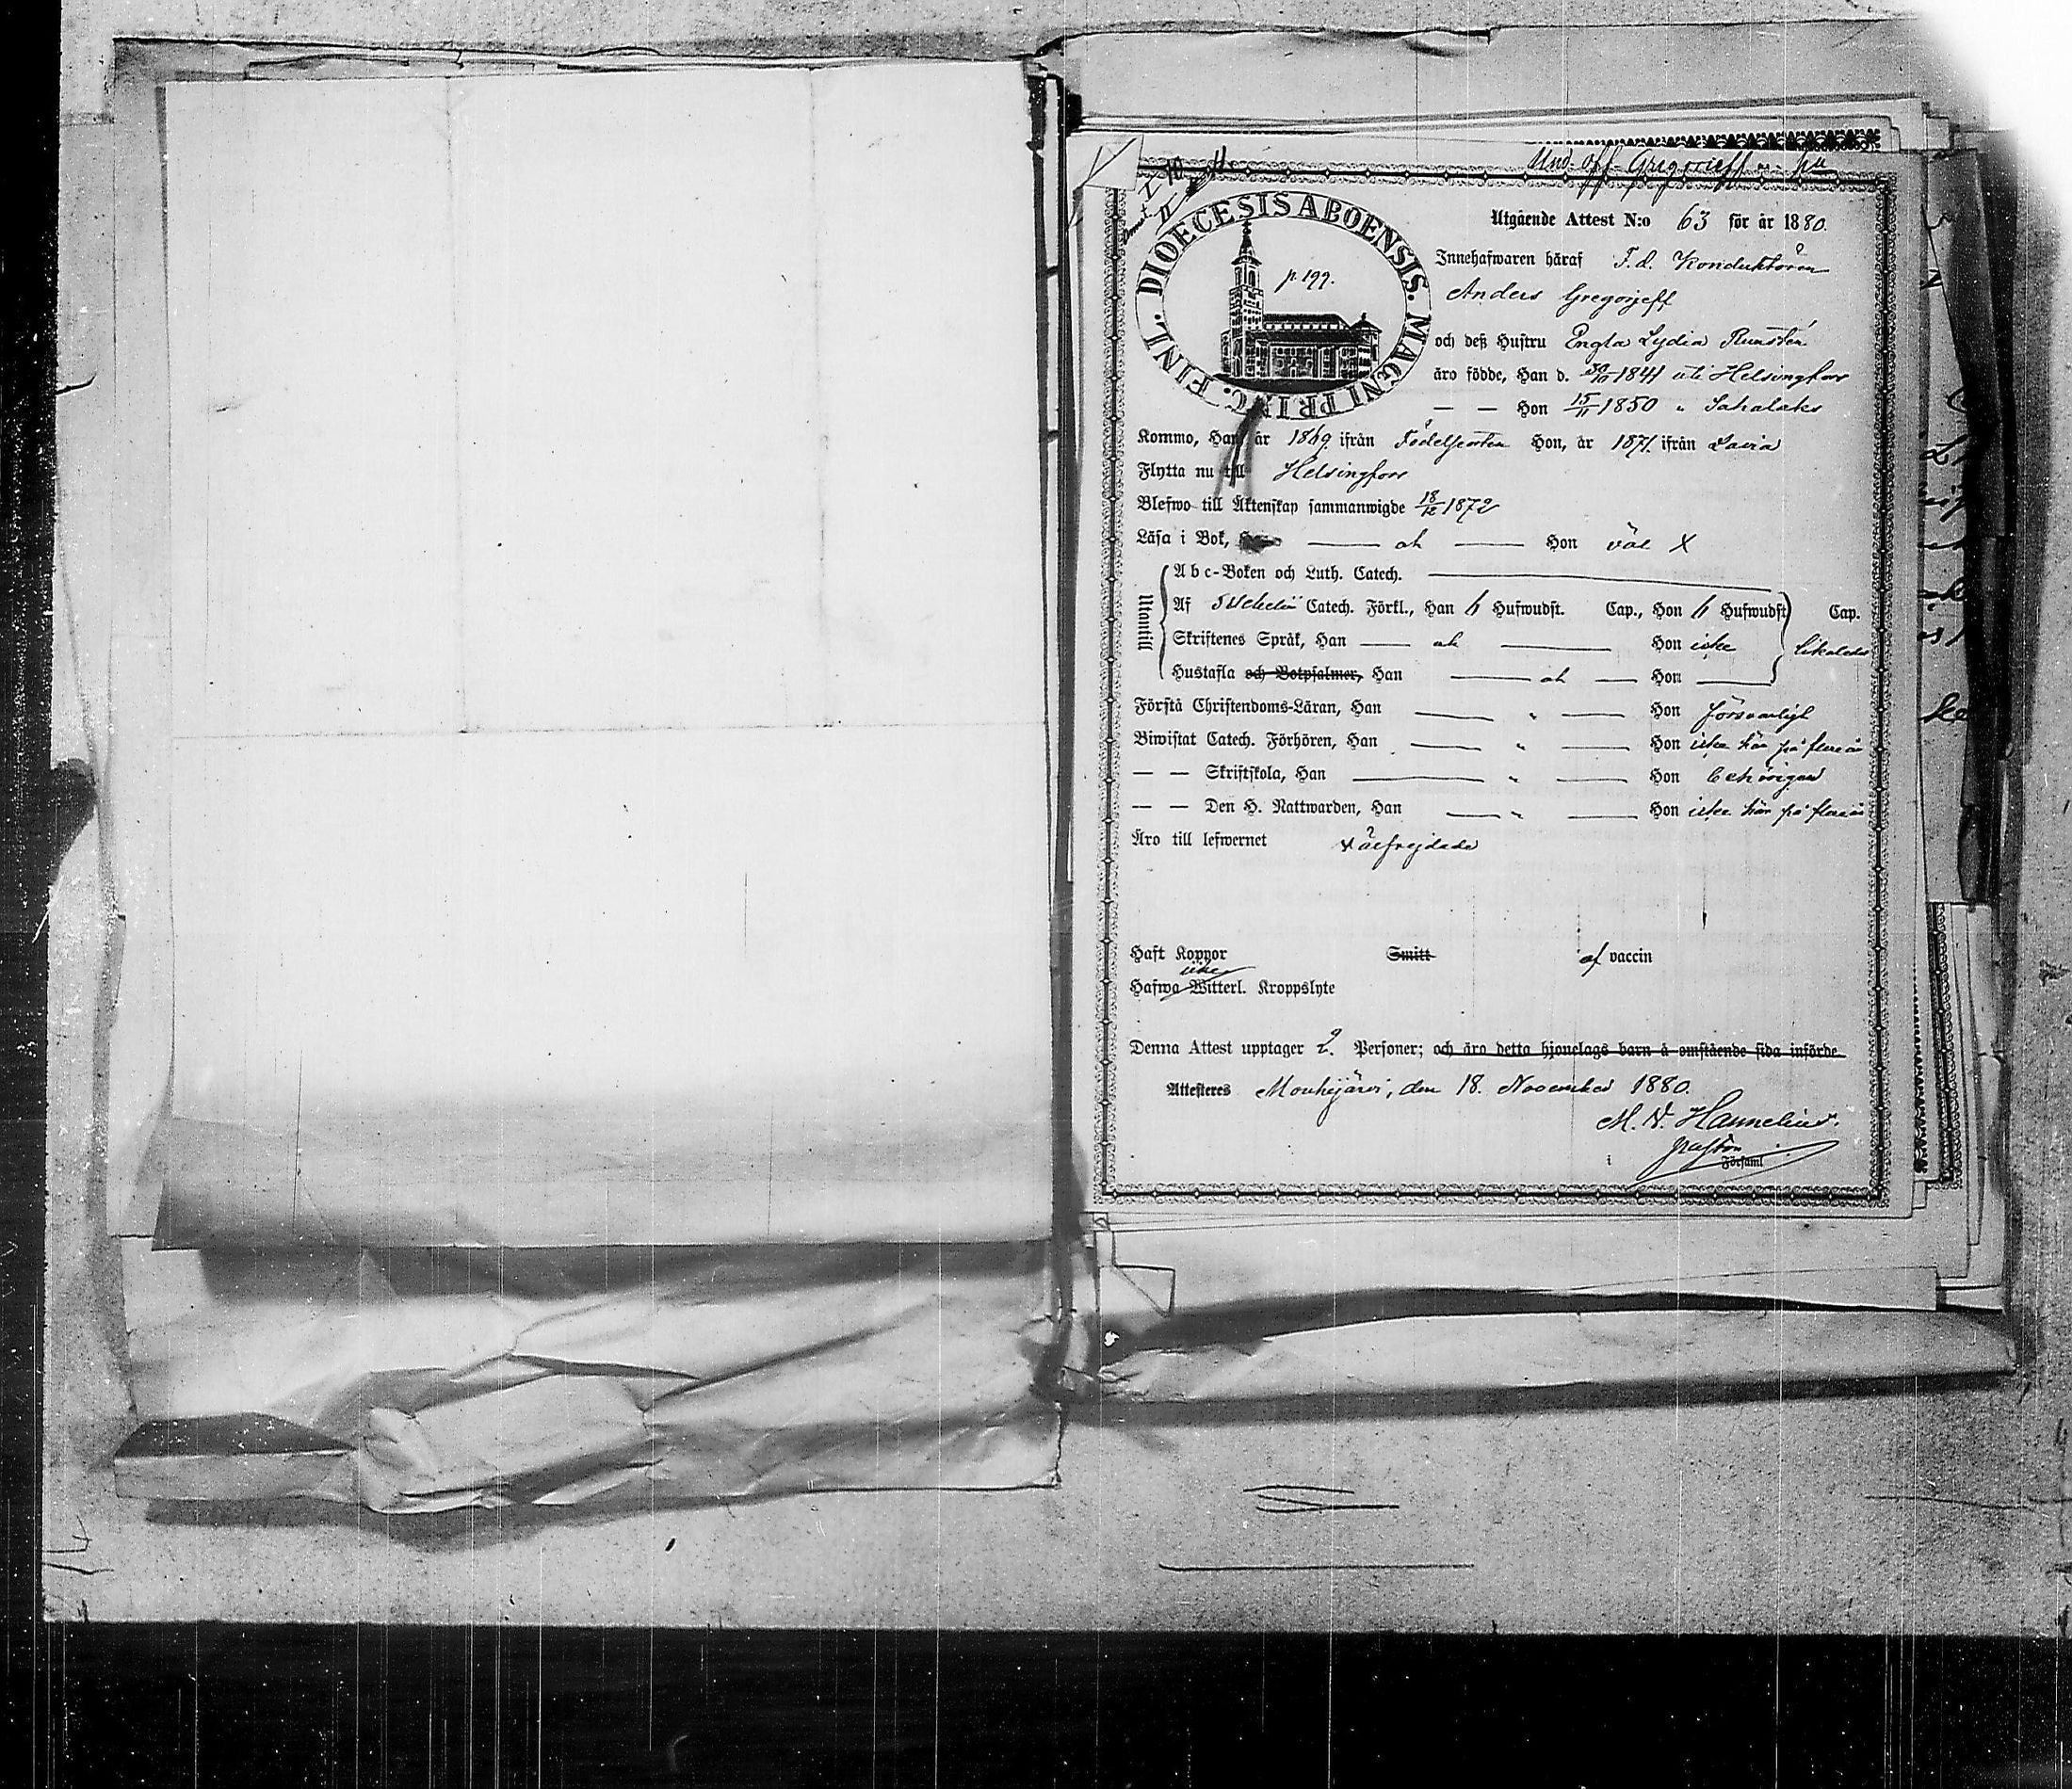 Und. off. Gregorieff
DIOECESIS ABOENSIS. MAGNI PRINC. FINL.
p. 199.
Utgående Attest N:o 63 för år 1880.
Innehafwaren häraf F.d. Konduktören
Anders Gregorjeff
och deß Hustru Engla Lydia Runstén
äro födde, Han d. 1841 uti Helsingfors
— — Hon 15/11 1850 " Sahalaks
Kommo, Han år 1869 ifrån Födelseorten Hon, år 1871 ifrån Lavia
Flytta nu till Helsingfors
Blefwo till Äktenskap sammanwigde 18/12 1872
Läsa i Bok, Han — oh — Hon väl X
Utantill
A b c-Boken och Luth. Catech. —
Af Svebelii Catech. Förkl., Han 6 Hufwudst. Cap., Hon 6 Hufwudst Cap.
Skriftenes Språk, Han — oh — Hon icke
likaledes
Hustafla och Botpsalmer, Han — oh — Hon —
Förstå Christendoms-Läran, Han — " — Hon försvarligt
Biwistat Catech. Förhören, Han — " — Hon icke här på flere år
— — Skriftskola, Han — " — Hon behörigen
— — Den H. Nattwarden, Han — " — Hon icke här på flere år
Äro till lefwernet välfrejdade
Haft Koppor Smitt af vaccin
icke
Hafwa Witterl. Kroppslyte
Denna Attest upptager 2. Personer; och äro detta hjonelags barn å omstående sida införde.
Attesteres Mouhijärvi, den 18. November 1880.
M. N. Hannelius.
pastor
i Församl